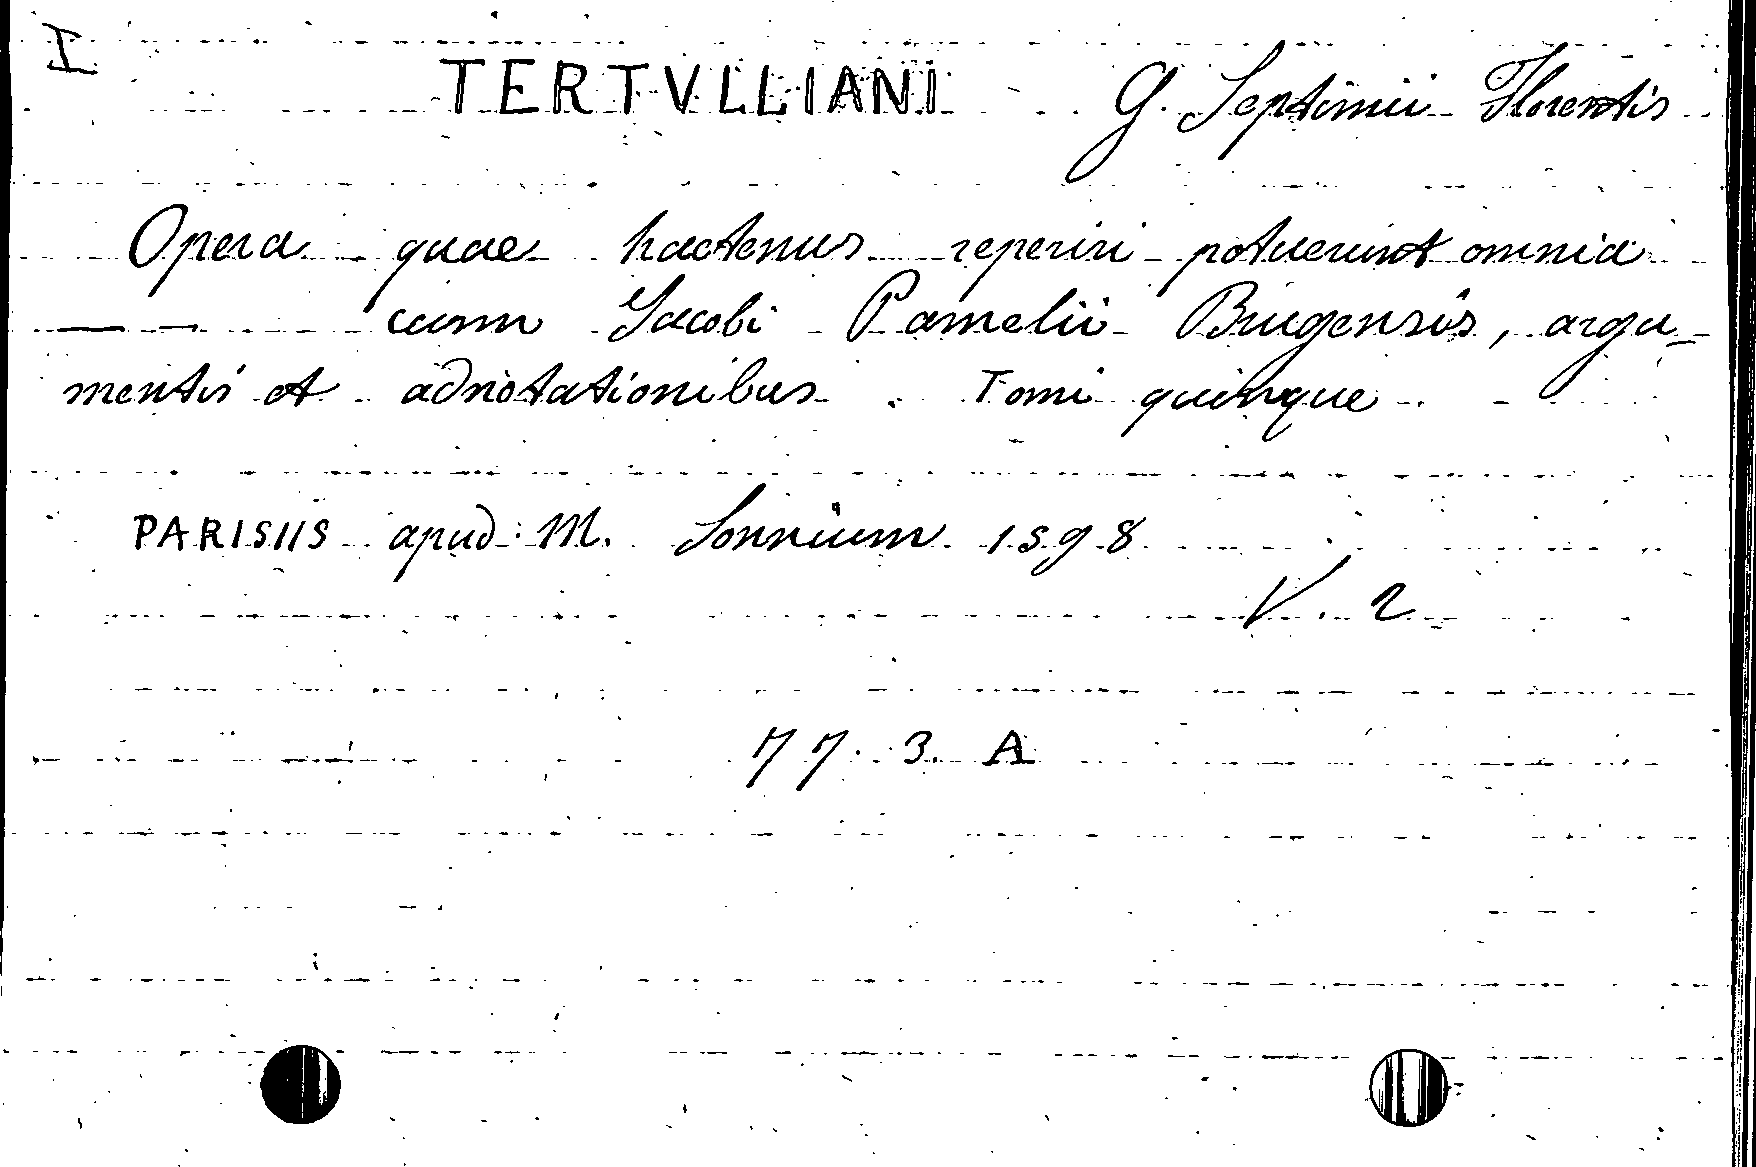 I
TERTVLLIANI G. Septimii Florentis
Opera quae hactenus reperiri potuerunt omnia
— — cum Jacobi Pamelii Brugensis, argu-
mentis et adnotationibus. Tomi quinque
PARISIIS apud M. Sonnium 1598
V. 2
77. 3. A